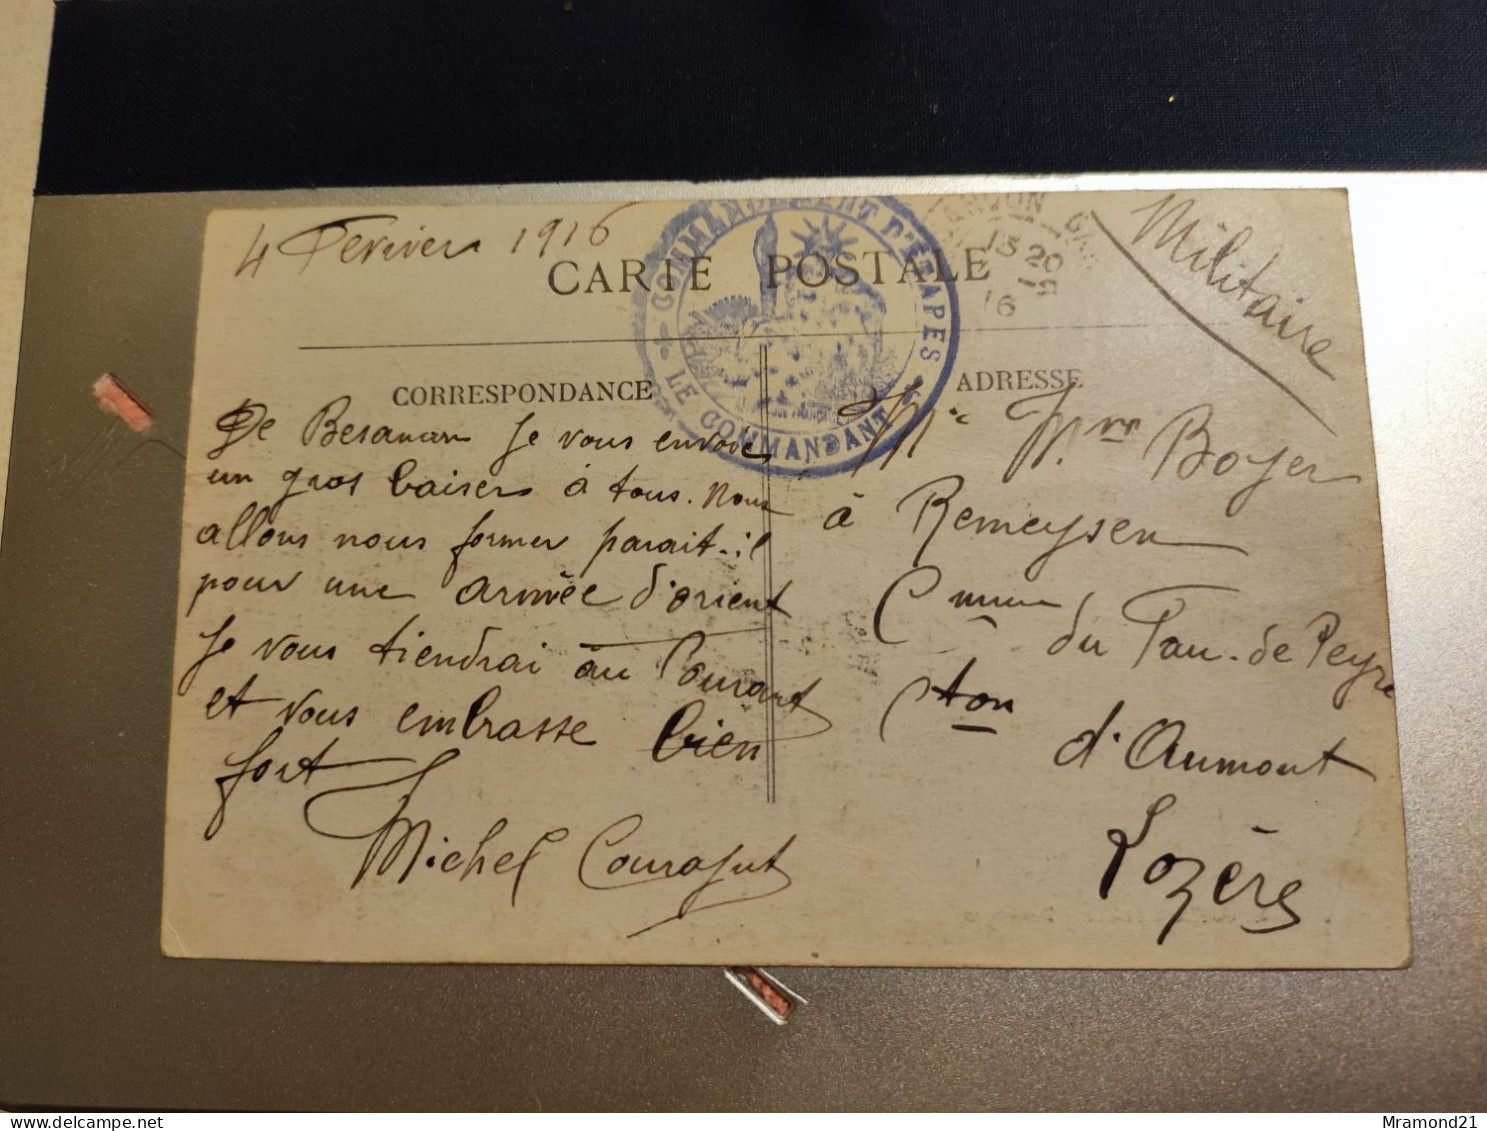 4 Fevrier 1916
CARTE POSTALE
COMMANDEMENT D'ÉTAPES
LE COMMANDANT
13 20
16
Militaire
CORRESPONDANCE
De Besançon je vous envoie
un gros baisers à tous. nous
allons nous former parait-il
pour une armée d'orient
Je vous tiendrai au Courant
et vous embrasse bien
fort
Michel
ADRESSE
Mr Mme Boyer
à Remeysen
Cmune du Fau-de Peyre
Cton d'Aumont
Lozère
delcampe.net
Mramond21